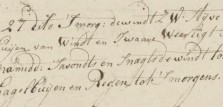 27 dito 's morg: de windt Z W. stijve
buijen van Windt en Zwaare Weerligt
namidd: 's avondts en 's nagts de windt
hagelbuijen en Regen tot 's morgens.